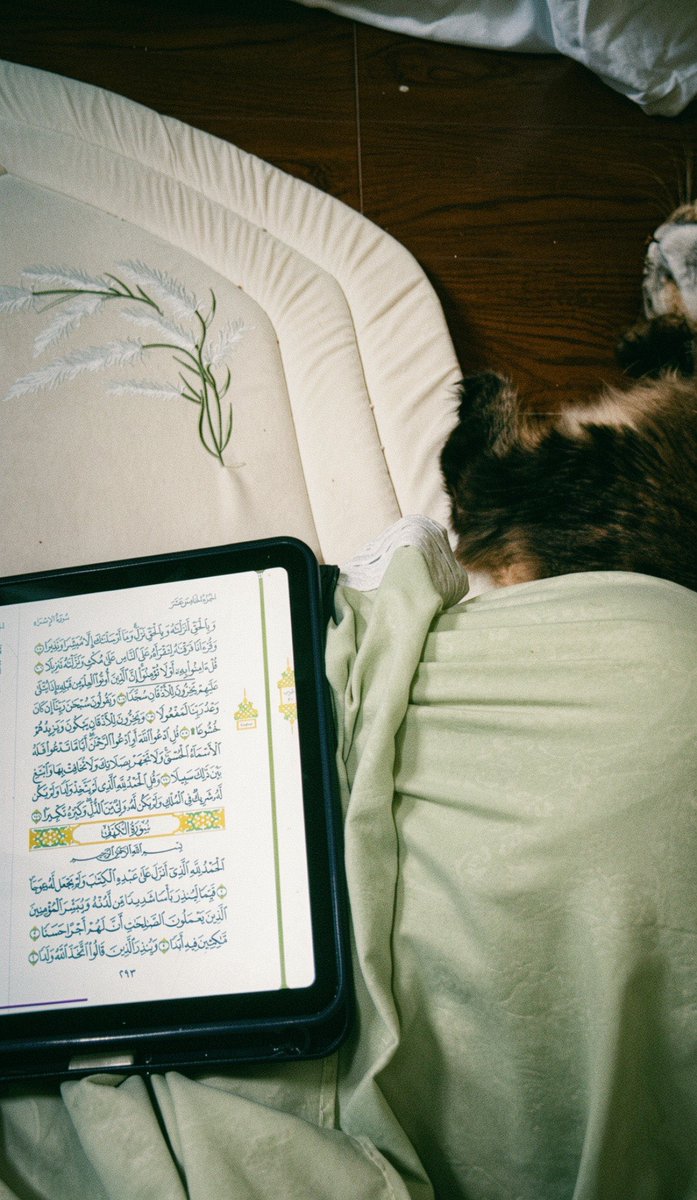 الجزء الخامس عشر
سورة الإسراء
وَبِٱلْحَقِّ أَنزَلْنَٰهُ وَبِٱلْحَقِّ نَزَلَۗ وَمَآ أَرْسَلْنَٰكَ إِلَّا مُبَشِّرًا وَنَذِيرًا ١٠٥
وَقُرْءَانًا فَرَقْنَٰهُ لِتَقْرَأَهُۥ عَلَى ٱلنَّاسِ عَلَىٰ مُكْثٍ وَنَزَّلْنَٰهُ تَنزِيلًا ١٠٦
قُلْ ءَامِنُوا۟ بِهِۦٓ أَوْ لَا تُؤْمِنُوٓا۟ۚ إِنَّ ٱلَّذِينَ أُوتُوا۟ ٱلْعِلْمَ مِن قَبْلِهِۦٓ إِذَا يُتْلَىٰ
عَلَيْهِمْ يَخِرُّونَ لِلْأَذْقَانِ سُجَّدًا ١٠٧ وَيَقُولُونَ سُبْحَٰنَ رَبِّنَآ إِن كَانَ
وَعْدُ رَبِّنَا لَمَفْعُولًا ١٠٨ وَيَخِرُّونَ لِلْأَذْقَانِ يَبْكُونَ وَيَزِيدُهُمْ
خُشُوعًا ۩ ١٠٩ قُلِ ٱدْعُوا۟ ٱللَّهَ أَوِ ٱدْعُوا۟ ٱلرَّحْمَٰنَۖ أَيًّا مَّا تَدْعُوا۟ فَلَهُ
ٱلْأَسْمَآءُ ٱلْحُسْنَىٰۚ وَلَا تَجْهَرْ بِصَلَاتِكَ وَلَا تُخَافِتْ بِهَا وَٱبْتَغِ
بَيْنَ ذَٰلِكَ سَبِيلًا ١١٠ وَقُلِ ٱلْحَمْدُ لِلَّهِ ٱلَّذِى لَمْ يَتَّخِذْ وَلَدًا وَلَمْ يَكُن
لَّهُۥ شَرِيكٌ فِى ٱلْمُلْكِ وَلَمْ يَكُن لَّهُۥ وَلِىٌّ مِّنَ ٱلذُّلِّۖ وَكَبِّرْهُ تَكْبِيرًۢا ١١١
سُورَةُ الكَهْفِ
بِسْمِ ٱللَّهِ ٱلرَّحْمَٰنِ ٱلرَّحِيمِ
ٱلْحَمْدُ لِلَّهِ ٱلَّذِىٓ أَنزَلَ عَلَىٰ عَبْدِهِ ٱلْكِتَٰبَ وَلَمْ يَجْعَل لَّهُۥ عِوَجَاۜ
١ قَيِّمًا لِّيُنذِرَ بَأْسًا شَدِيدًا مِّن لَّدُنْهُ وَيُبَشِّرَ ٱلْمُؤْمِنِينَ
ٱلَّذِينَ يَعْمَلُونَ ٱلصَّٰلِحَٰتِ أَنَّ لَهُمْ أَجْرًا حَسَنًا ٢
مَّٰكِثِينَ فِيهِ أَبَدًا ٣ وَيُنذِرَ ٱلَّذِينَ قَالُوا۟ ٱتَّخَذَ ٱللَّهُ وَلَدًا ٤
٢٩٣